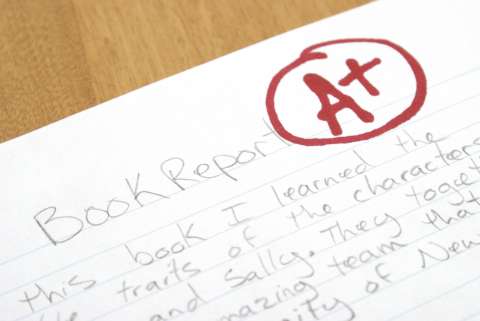 A+
Book Report
this book I learned the
traits of the characters
and Sally. They toget
mazing team that
of New